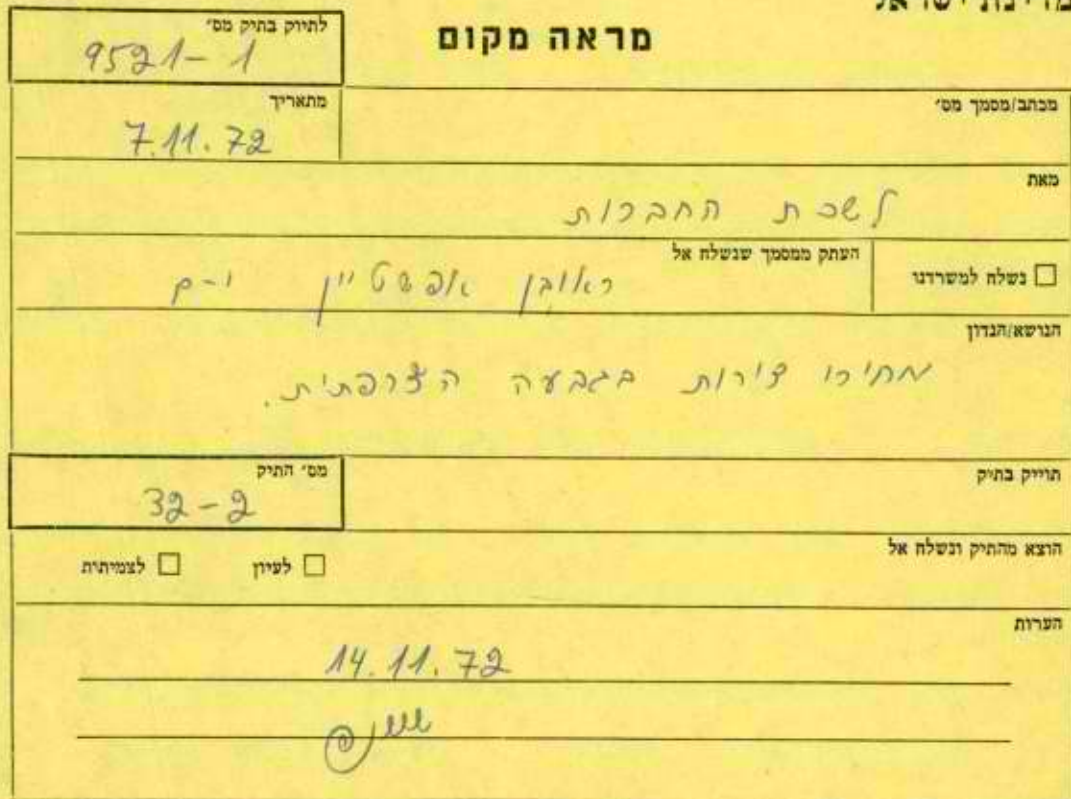 מדינת ישראל
מראה מקום
לתיוק בתיק מס׳
9521-1
מכתב/מסמך מס׳
מתאריך
7.11.72
מאת
לשכת החברות
□ נשלח למשרדנו
העתק ממסמך שנשלח אל
ראובן אפשטיין י-ם
הנושא/הנדון
מחירי דירות בגבעה הצרפתית.
תוייק בתיק
מס׳ התיק
32-2
הוצא מהתיק ונשלח אל
□ לעיון □ לצמיתית
הערות
14.11.72